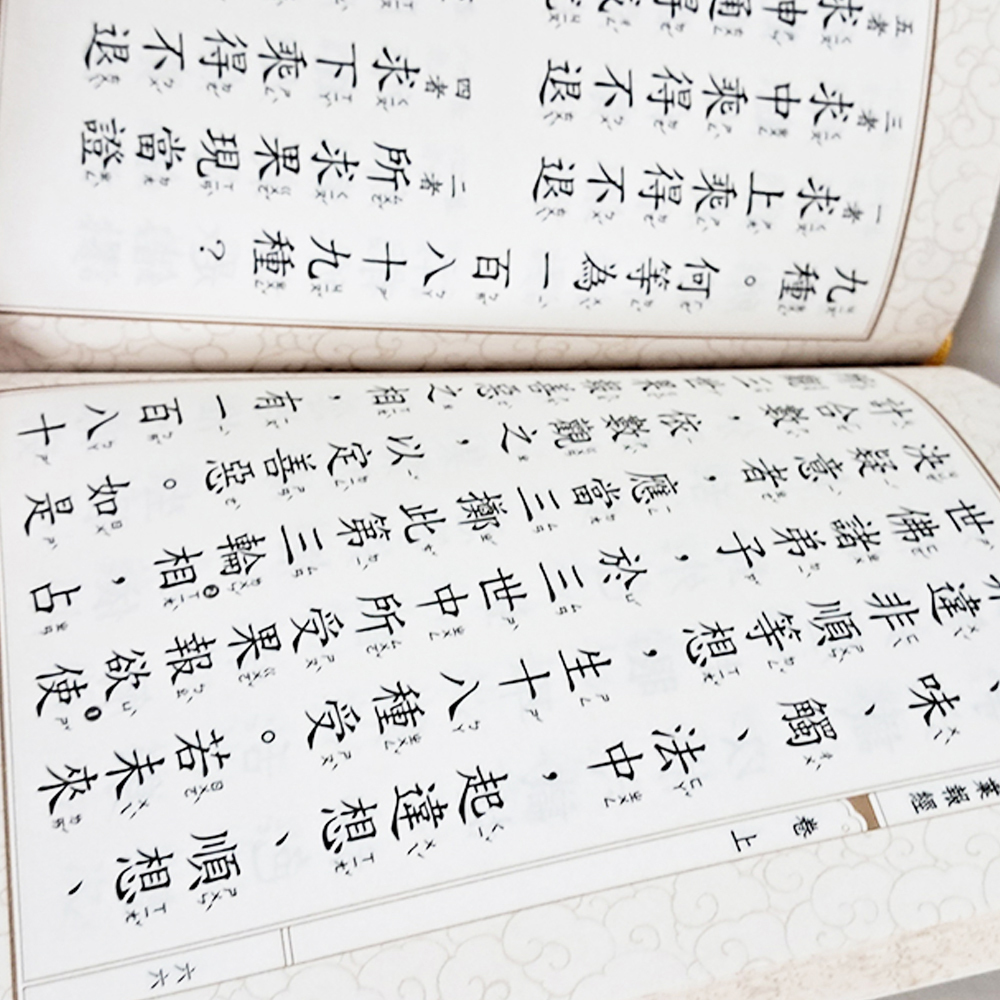 業報經
卷上
六六
、味、觸、法中，起違想、順想、
非違非順等想，生十八種受。若未來
世佛諸弟子，於三世中所受果報欲使❶
決疑意者，應當三擲此第三輪相❷，占
計合數，依數觀之，以定善惡。如是
所觀三世果報善惡之相，有一百八十
九種。何等為一百八十九種？
一者求上乘得不退
二者所求果現當證
三者求中乘得不退
四者求下乘得不退
五者求神通得